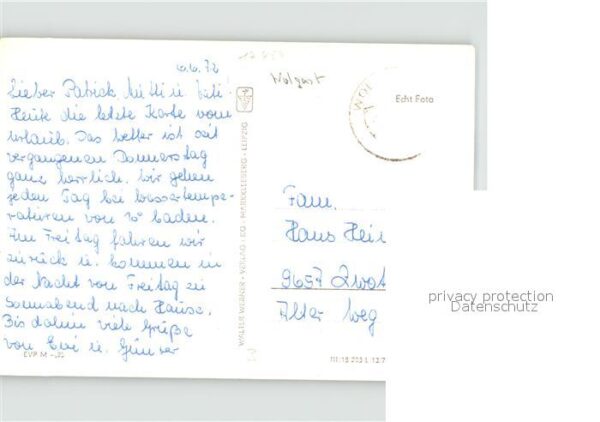 6.6.72
Lieber Patrick, Mutti u. Vati!
Heute die letzte Karte vom
Urlaub. Das Wetter ist seit
vergangenen Donnerstag
ganz herrlich. Wir gehen
jeden Tag bei Wassertempe-
raturen von 10° baden.
Am Freitag fahren wir
zurück u. kommen in
der Nacht von Freitag zu
Sonnabend nach Hause.
Bis dahin viele Grüße
von Evi u. Günter
EVP M -,20
WALTER WERNER · VERLAG KG · MARKKLEEBERG - LEIPZIG
Wolgast
WOL
Echt Foto
Fam.
Hans Hein
9657 Zwot
Alter Weg
privacy protection
Datenschutz